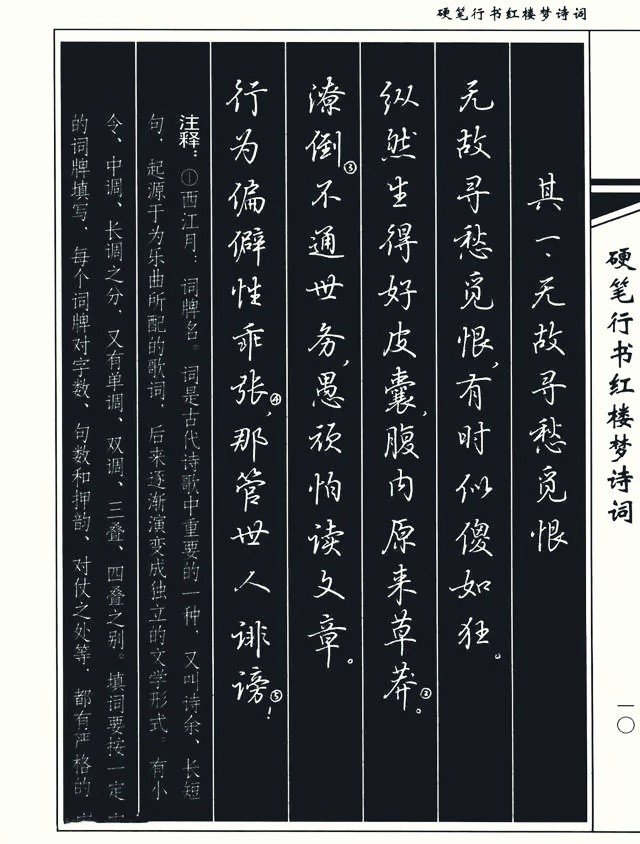 硬笔行书红楼梦诗词
硬笔行书红楼梦诗词
一〇
其一、无故寻愁觅恨
无故寻愁觅恨，有时似傻如狂。
纵然生得好皮囊，腹内原来草莽②。
潦倒③不通世务，愚顽怕读文章。
行为偏僻性乖张④，那管世人诽谤⑤！
注释：①西江月：词牌名。词是古代诗歌中重要的一种，又叫诗余、长短
句，起源于为乐曲所配的歌词，后来逐渐演变成独立的文学形式。有小
令、中调、长调之分，又有单调、双调、三叠、四叠之别。填词要按一定
的词牌填写，每个词牌对字数、句数和押韵、对仗之处等，都有严格的